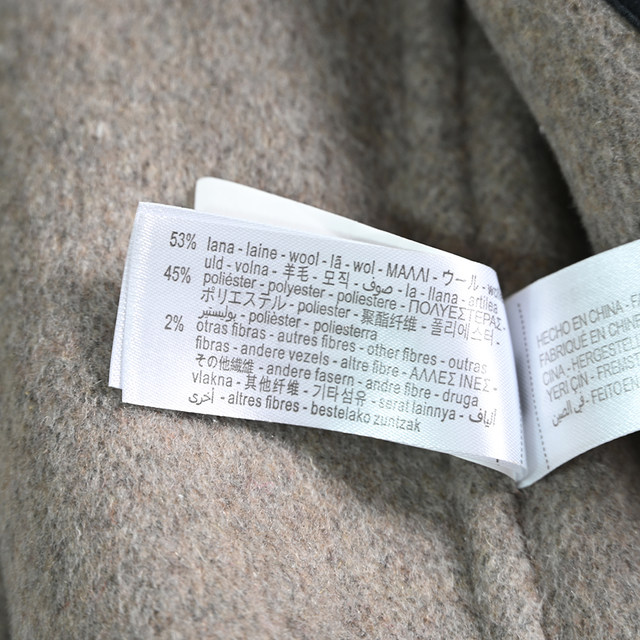 53% lana - laine - wool - lã - wol - ΜΑΛΛΙ - ウール -
uld - volna - 羊毛 - 모직 - صوف - la - llana - artilea
45% poliéster - polyester - poliestere - ΠΟΛΥΕΣΤΕΡΑΣ -
ポリエステル - poliester - 聚酯纤维 - 폴리에스터 -
بوليستير - polièster - poliesterra
2% otras fibras - autres fibres - other fibres - outras
fibras - andere vezels - altre fibre - ΑΛΛΕΣ ΙΝΕΣ -
その他繊維 - andere fasern - andre fibre - druga
vlakna - 其他纤维 - 기타섬유 - serat lainnya - ألياف
أخرى - altres fibres - bestelako zuntzak
HECHO EN CHINA -
FABRIQUÉ EN CHINE
ÇİN - HERGESTELLT
YERİ ÇİN -
في الصين - FEITO EM